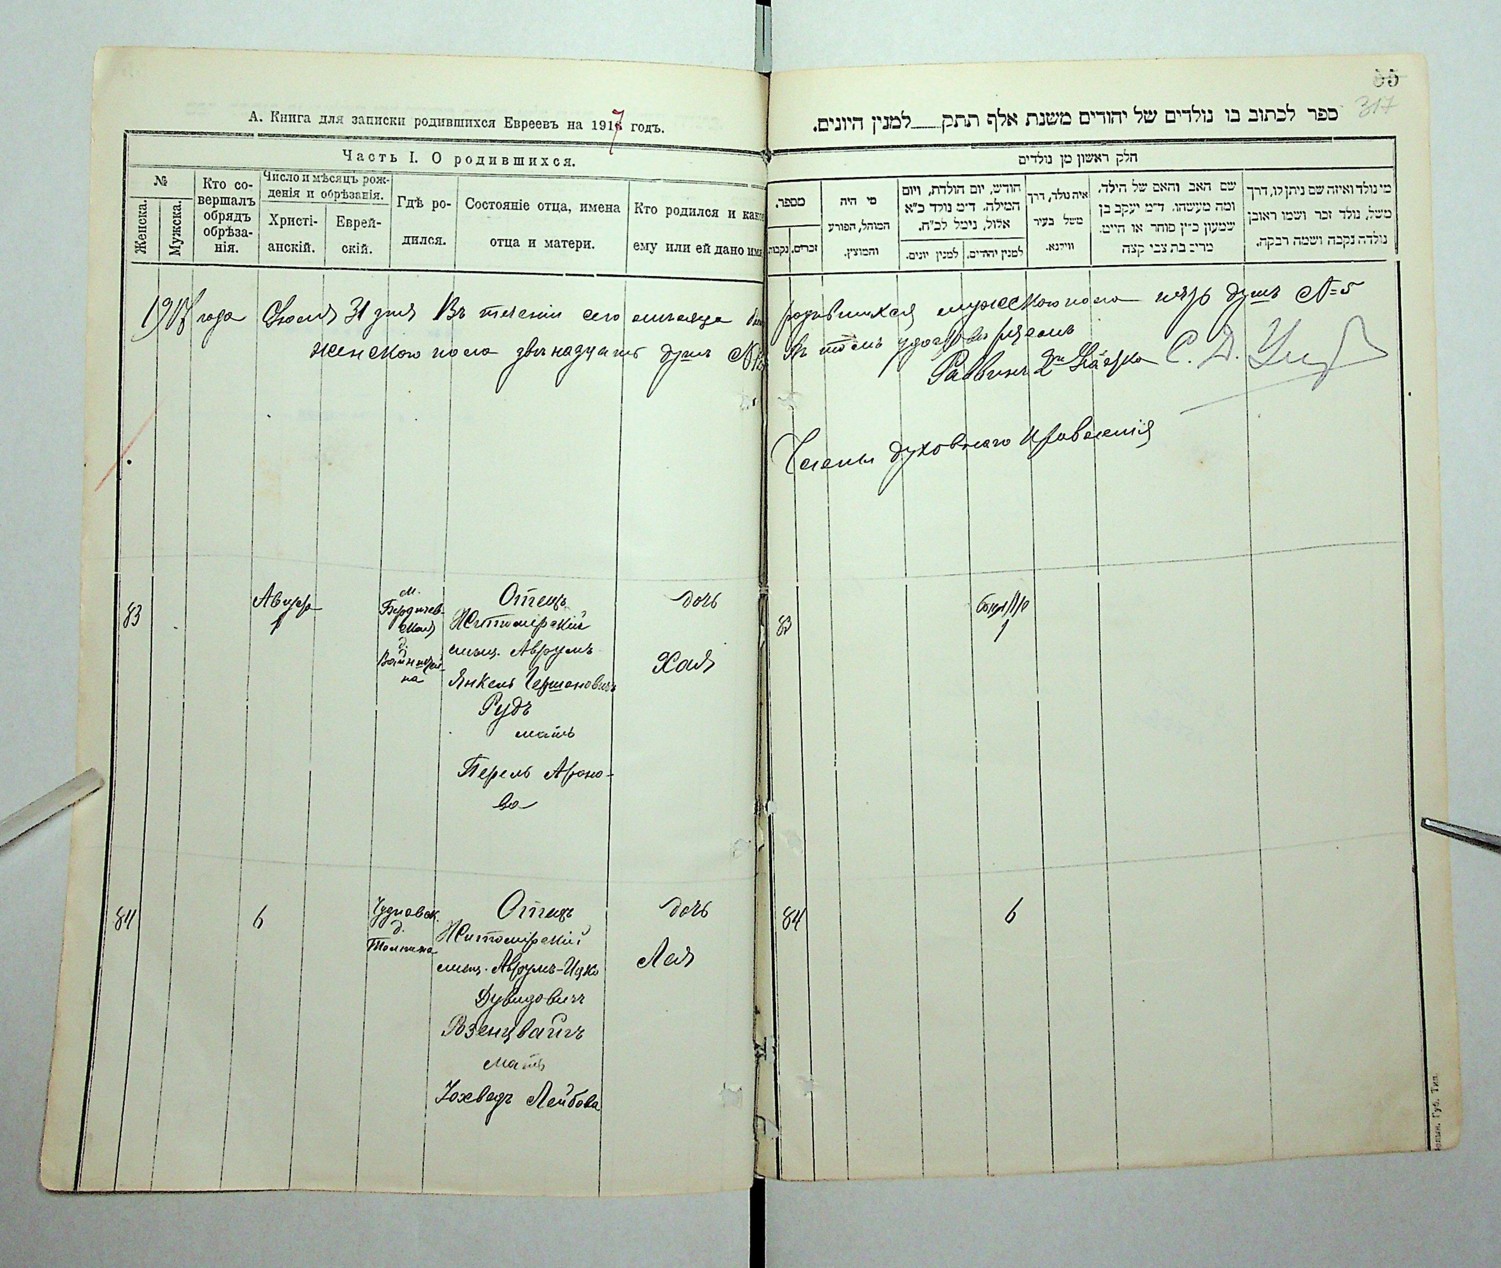 А. Книга для записки родившихся Евреевъ на 1917 годъ.
Часть I. О родившихся.
№
Женска.
Мужска.
Кто со-
вершалъ
обрядъ
обрѣза-
нія.
Число и мѣсяцъ рож-
денія и обрѣзанія.
Христі-
анскій.
Еврей-
скій.
Гдѣ ро-
дился.
Состояніе отца, имена
отца и матери.
Кто родился и како
ему или ей дано имя
года Іюля 31 дня Въ теченіи сего мѣсяца
женского пола двенадцать душъ
83
Август
1
м.
Бердичев-
ская
д.
Отецъ
Житомірскій
мѣщ. Аврумъ
Янкель Гершоновичъ
Рудъ
мать
Перель Ароно-
ва
дочь
Хая
84
6
Чудновск.
д.
Отецъ
Житомірскій
мѣщ. Аврумъ-Ицко
Дувидовичъ
Розенцвайгъ
мать
Іохведъ Лейбова
дочь
Лея
55
317
ספר לכתוב בו נולדים של יהודים משנת אלף תתק___למנין היונים.
חלק ראשון מן נולדים
מספר,
זכרים,
נקבות
מי היה
המוהל, הפורע
והמוצץ.
חודש, יום הולדת, ויום
המילה. ד״מ נולד כ״א
אלול, נימל לכ״ח.
למנין יהודים,
למנין יונים.
איה נולד, דרך
משל בעיר
ווילנא.
שם האב והאם של הילד.
ומה מעשהו. ד״מ יעקב בן
שמעון כ״ץ סוחר או חייט.
מרים בת צבי קצה
מי נולד ואיזה שם ניתן לו, דרך
משל, נולד זכר ושמו ראובן
נולדה נקבה ושמה רבקה.
родившихся мужского пола пять душъ №5
въ томъ удостовѣряемъ
Раввинъ
Члены духовнаго Правленія
83
1
84
6
Губ. Тип.